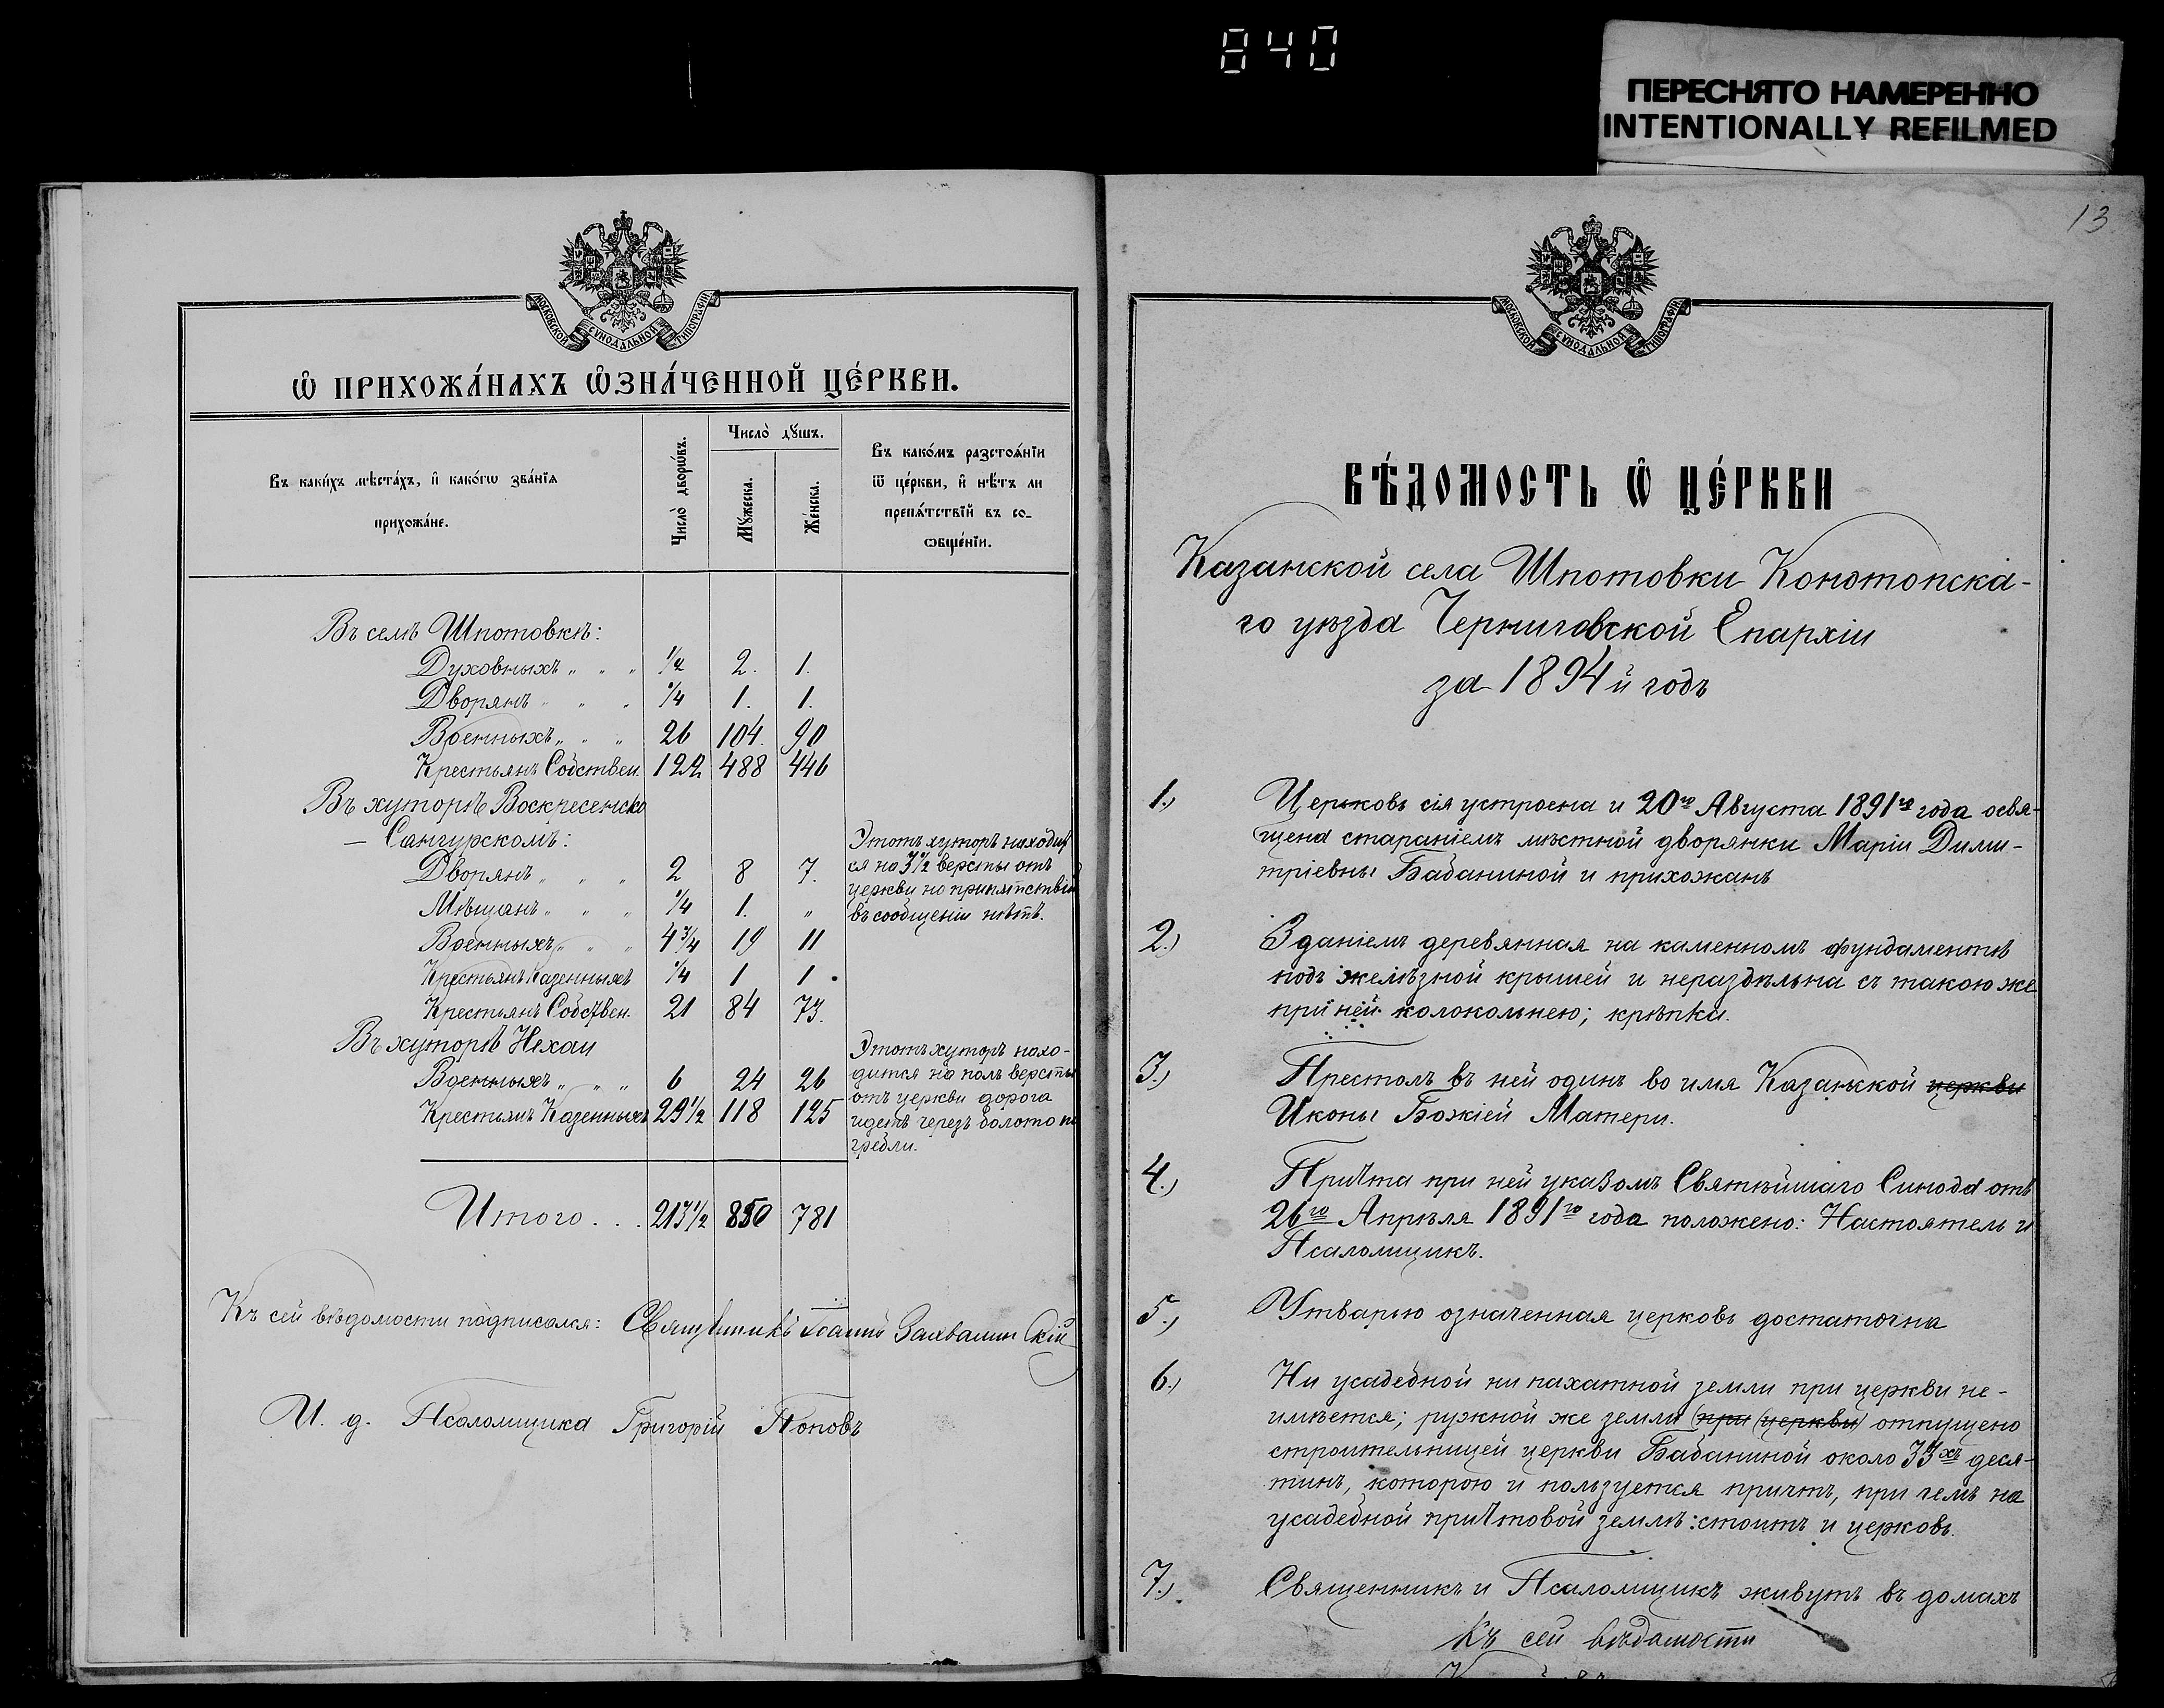 840
ПЕРЕСНЯТО НАМЕРЕННО
INTENTIONALLY REFILMED
МОСКОВСКОЙ СУНОДАЛЬНОЙ ТИПОГРАФІИ
Ѽ ПРИХОЖА́НАХЪ Ѽ҆ЗНА́ЧЕННОЙ ЦЕ́РКВИ.
Въ каки́хъ мѣста́хъ, и҆ како́гѡ зва́нїѧ
прихожа́не.
Число̀ дворѡ́въ.
Число̀ дꙋшъ.
Мꙋ́жеска.
Же́нска.
Въ како́мъ разстоѧ́нїи
ѿ це́ркви, и҆ нѣ́тъ ли
препѧ́тствїй въ со-
ѻбще́нїи.
Въ селѣ Шпотовкѣ:
Духовныхъ „ „ „ 1/2 2. 1.
Дворянъ „ „ „ 1/4 1. 1.
Военныхъ „ „ „ 26 104. 90
Крестьянъ Собствен. 122 488 446
Въ хуторѣ Воскресенско
— Сангурскомъ:
Дворянъ „ „ „ 2 8 7.
Мѣщанъ „ „ „ 1/4 1. „
Военныхъ „ „ „ 4 3/4 19 11
Крестьянъ Казенныхъ 1/4 1 1
Крестьянъ Собствен. 21 84 73.
Этотъ хуторъ находит
ся на 3 1/2 версты отъ
церкви но припятствій
въ сообщеніи нѣтъ.
Въ хуторѣ Нехаи
Военныхъ „ „ „ 6 24 26
Крестьянъ Казенныхъ 29 1/2 118 125
Этотъ хуторъ нахо-
дится на полъ версты
отъ церкви дорога
идетъ черезъ болото по
гребли.
Итого . . . 213 1/2 850 781
Къ сей вѣдомости подписался: Священникъ Іоаннъ
И. д. Псаломщика Григорій Поповъ
13
МОСКОВСКОЙ СУНОДАЛЬНОЙ ТИПОГРАФІИ
ВѢ́ДОМОСТЬ Ѽ ЦЕ́РКВИ
Казанской села Шпотовки Конотопска-
го уѣзда Черниговской Епархіи
за 1894й годъ
1.) Церковь сія устроена и 20го Августа 1891го года освя-
щена стараніемъ мѣстной дворянки Маріи Дими-
тріевны Бабаниной и прихожанъ
2.) Зданіемъ деревянная на каменномъ фундаментѣ
подъ желѣзной крышей и нераздѣльна съ такою же
при ней колокольнею; крѣпка.
3.) Престолъ въ ней одинъ во имя Казанской церкви
Иконы Божіей Матери.
4.) Причта при ней указомъ Святѣйшаго Синода отъ
26го Апрѣля 1891го года положено: Настоятель и
Псаломщикъ.
5.) Утварью означенная церковь достаточна
6.) Ни усадебной ни пахатной земли при церкви не-
имѣется; ружной же земли (при церкви) отпущено
строительницей церкви Бабаниной около 33хъ деся-
тинъ, которою и пользуется причтъ, при чемъ на
усадебной причтовой землѣ: стоитъ и церковь.
7.) Священникъ и Псаломщикъ живутъ въ домахъ
Къ сей вѣдомости